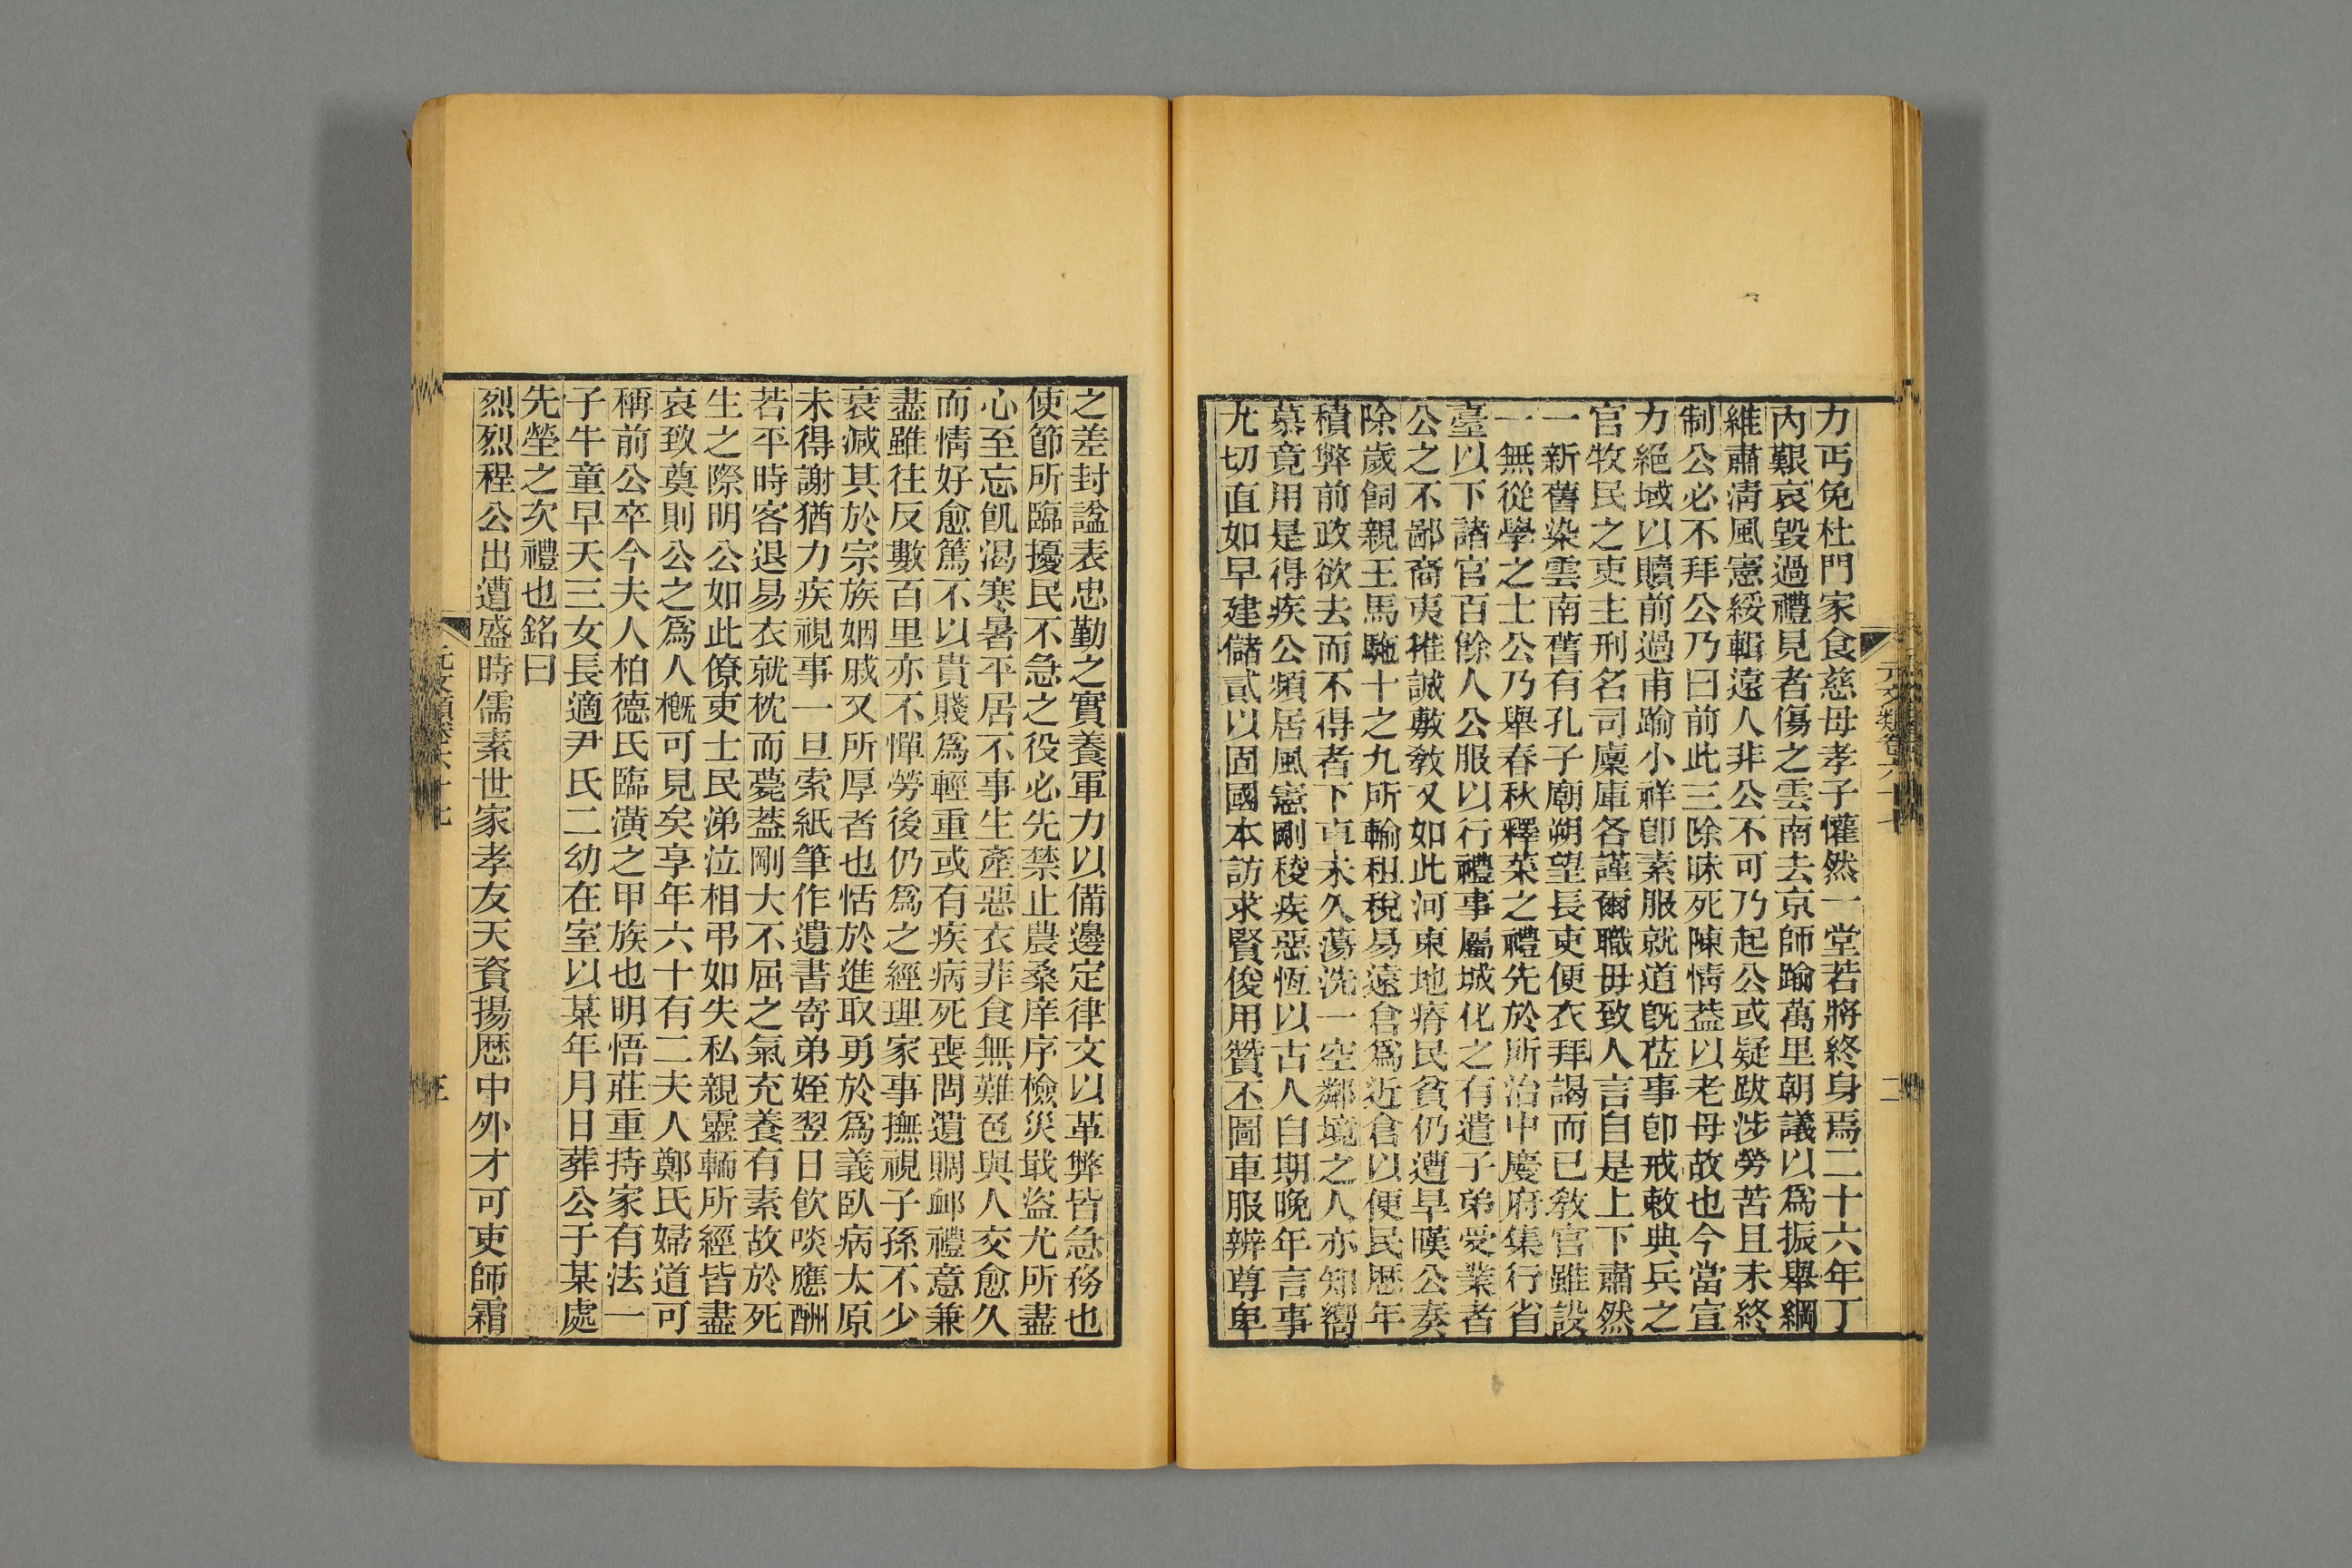 力丐免杜門家食慈母孝子懽然一堂若將終身焉二十六年丁
內艱哀毀過禮見者傷之雲南去京師踰萬里朝議以爲振舉綱
維肅淸風憲綏輯遠人非公不可乃起公或疑跋涉勞苦且未終
制公必不拜公乃曰前此三除昧死陳情葢以老母故也今當宣
力絕域以贖前過甫踰小祥卽素服就道旣莅事卽戒敕典兵之
官牧民之吏主刑名司廩庫各謹爾職毋致人言自是上下肅然
一新舊染雲南舊有孔子廟朔望長吏便衣拜謁而已敎官雖設
一無從學之士公乃舉春秋釋菜之禮先於所治中慶府集行省
臺以下諸官百餘人公服以行禮事屬城化之有遣子弟受業者
公之不鄙裔夷推誠敷敎又如此河東地瘠民貧仍遭旱嘆公奏
除歲飼親王馬駞十之九所輸租稅易遠倉爲近倉以便民歷年
積弊前政欲去而不得者下車未久蕩洗一空鄰境之人亦知嚮
慕竟用是得疾公頻居風憲剛稜疾惡恆以古人自期晚年言事
尤切直如早建儲貳以固國本訪求賢俊用贊丕圖車服辨尊卑
元文類卷六十七
二
之差封諡表忠勤之實養軍力以備邊定律文以革弊皆急務也
使節所臨擾民不急之役必先禁止農桑庠序檢災戢盜尤所盡
心至忘飢渴寒暑平居不事生產惡衣菲食無難色與人交愈久
而情好愈篤不以貴賤爲輕重或有疾病死喪問遺賙衈禮意兼
盡雖往反數百里亦不憚勞後仍爲之經理家事撫視子孫不少
衰減其於宗族姻戚又所厚者也恬於進取勇於爲義臥病太原
未得謝猶力疾視事一旦索紙筆作遺書寄弟姪翌日飮啖應酬
若平時客退易衣就枕而薨葢剛大不屈之氣充養有素故於死
生之際明公如此僚吏士民涕泣相弔如失私親靈輀所經皆盡
哀致奠則公之爲人槪可見矣享年六十有二夫人鄭氏婦道可
稱前公卒今夫人柏德氏臨潢之甲族也明悟莊重持家有法一
子牛童早夭三女長適尹氏二幼在室以某年月日葬公于某處
先塋之次禮也銘曰
烈烈程公出遭盛時儒素世家孝友天資揚歷中外才可吏師霜
元文類卷六十七
三